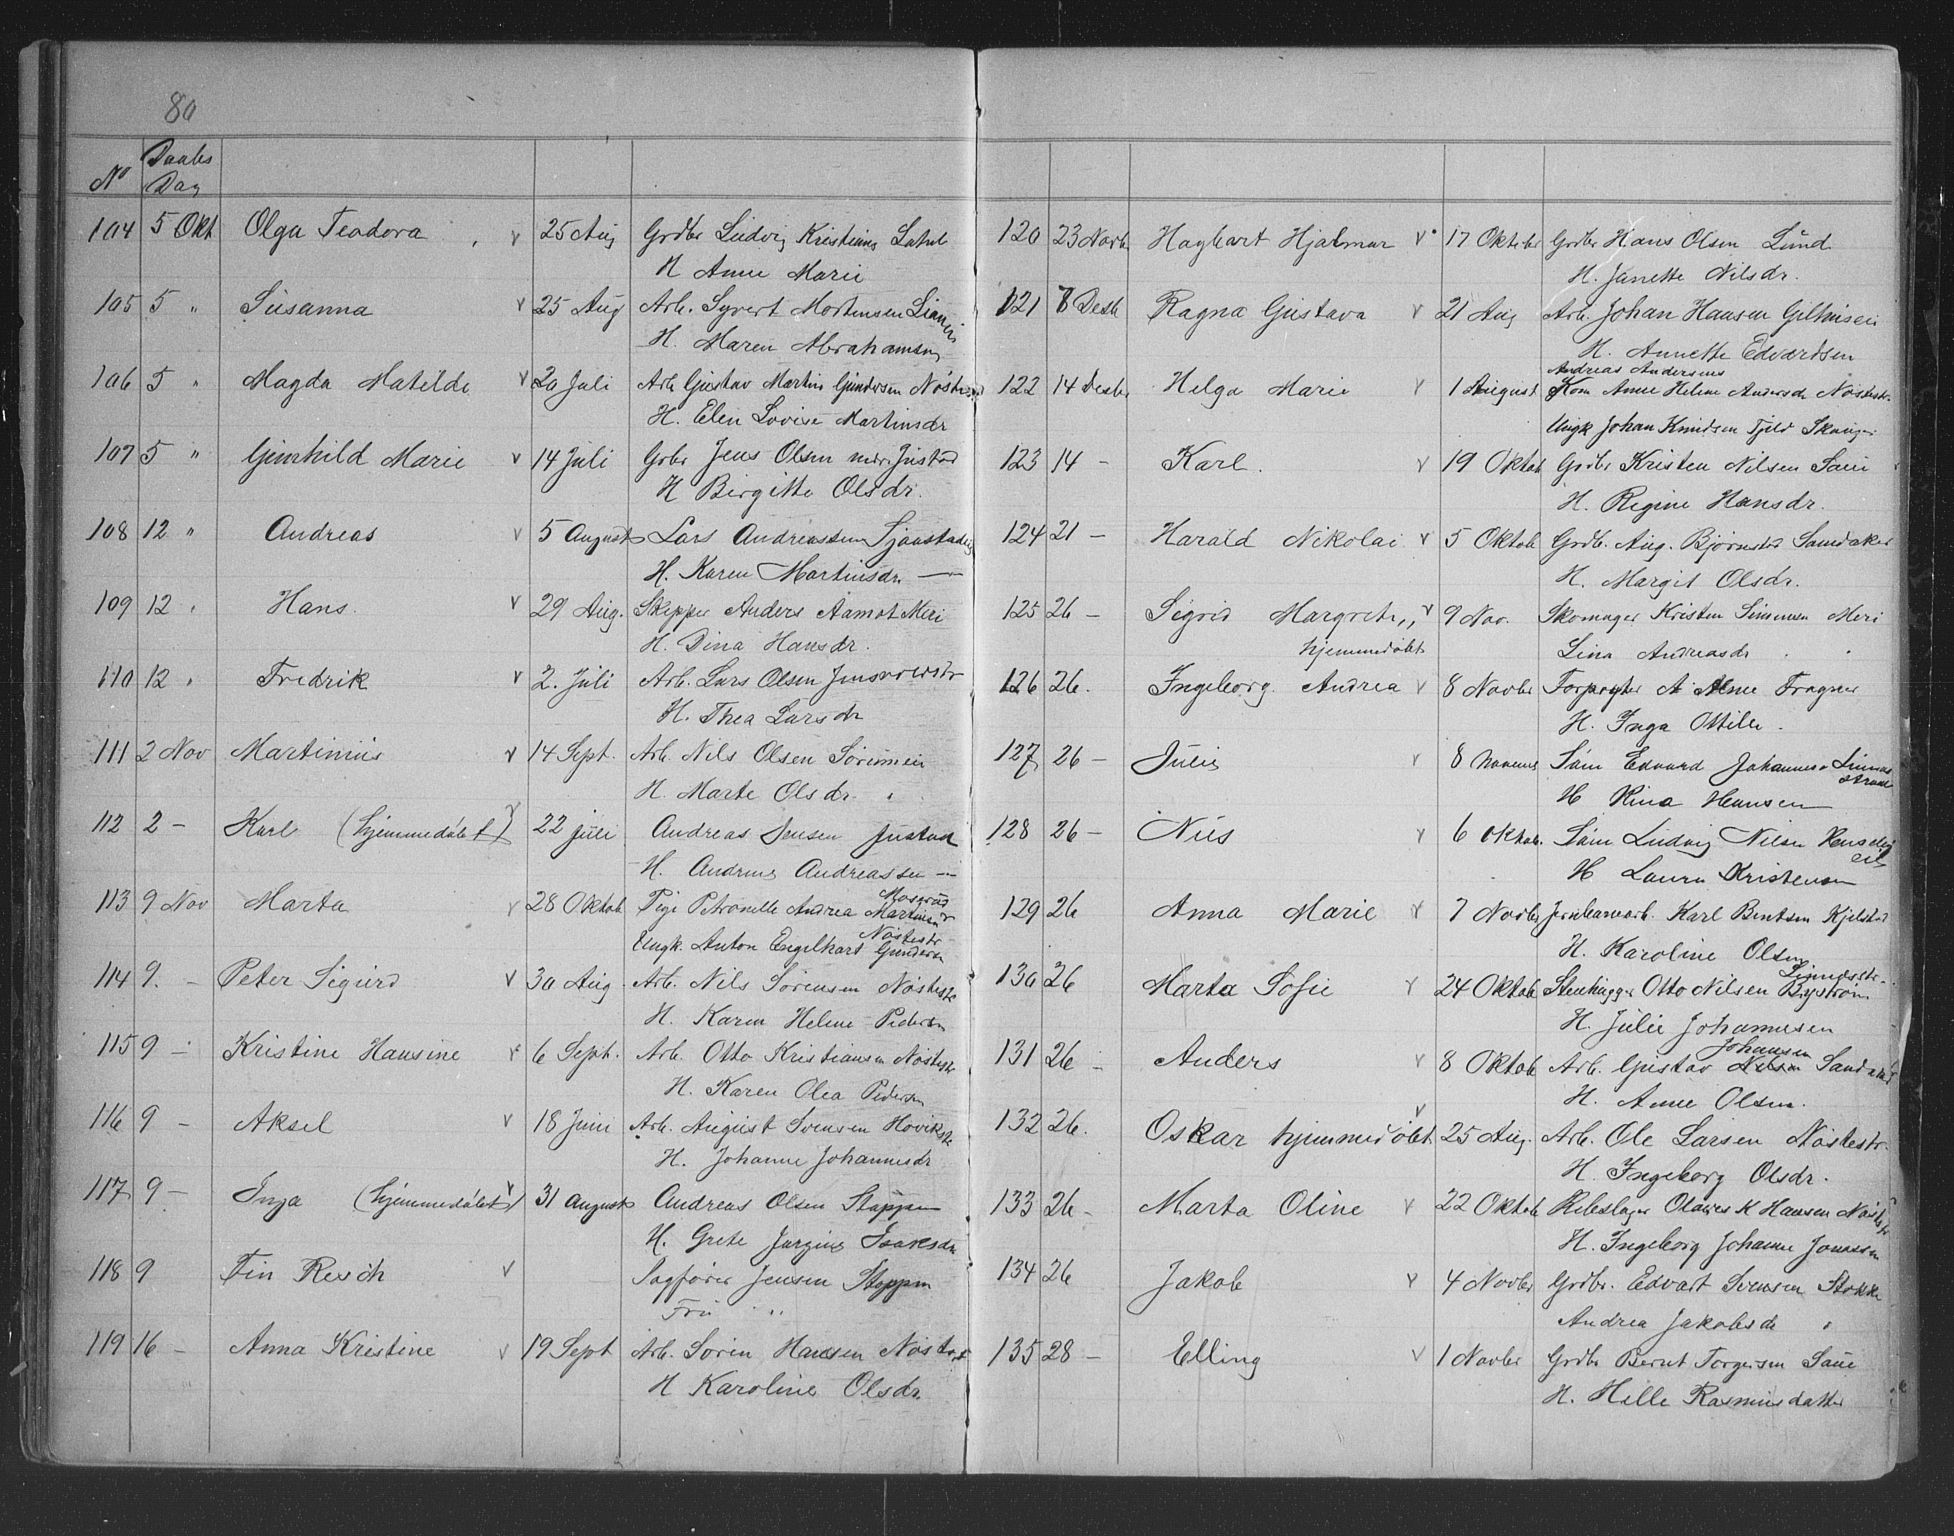 80
No Daabs Dag
104 5 Okt Olga Teodora v 25 Aug Grdbr Ludvig Kristians
H Anne Marie
105 5 " Susanna v 25 Aug Arb. Syvert Mortensen
H. Maren Abrahamsen
106 5 " Magda Matilde v 20 Juli Arb Gustav Martin Gundersen
H. Elen Lovise Martinsdr
107 5 " Gunhild Marie v 14 Juli Grbr Jens Olsen Justad
H Birgitte Olsdr.
108 12 " Andreas v 5 August Lars Andreassen
H. Karen Martinsdr —
109 12 " Hans. v 29 Aug. Skipper Anders Aamot Meri
H. Dina Hansdr.
110 12 " Fredrik v 2. Juli Arb. Lars Olsen
H. Thea Larsdr
111 2 Nov Martinius v 14 Sept. Arb. Nils Olsen
H. Marte Olsdr.
112 2 - Karl (hjemmedøbt) v 22 juli Andreas Jensen Justad
H. Andrine Andreassen —
113 9 Nov Marta v 28 Oktob Pige Petronelle Andrea Martinsdr
Nøstestr
Ungk. Anton Engelhart Gundersen
114 9. - Peter Sigurd v 30 Aug. Arb. Nils Sørensen Nøstestr
H. Karen Helene Pedersen
115 9 - Kristine Hansine v 6 Sept. Arb. Otto Kristiansen Nøstestr
H. Karen Olea Pedersen
116 9 - Aksel v 18 Juni Arb. August Svensen Høvikstr
H. Johanne Johannesdr
117 9 - Inga (hjemmedøbt) v 31 August Andreas Olsen Stoppen
H. Grete Jørgine Isaksdr
118 9 Fin Resch v Sagfører Jensen Stoppen
Fru "
119 16 - Anna Kristine v 19 Sept Arb. Søren Hansen Nøstestr
H Karoline Olsdr
120 23 Novb. Hagbart Hjalmar v 17 Oktober Grdbr Hans Olsen Lund
H. Janette Nilsdr.
121 8 Desb Ragna Gustava v 21 Aug Arb. Johan Hansen Gilhusen
H. Annette Edvardsen
Andreas Andersens
122 14 Desbr Helga Marie v 1 August Kon Anne Helene Andersdr Nøstestr.
Ungk Johan Knudsen Fjeld Skauger
123 14 - Karl. v 19 Oktob Grdbr Kristen Nilsen Saue
H. Regine Hansdr.
124 21 - Harald Nikolai v 5 Oktob Grdb. Aug. Bjørnstad Sandaker
H. Margit Olsdr.
125 26 - Sigrid Margrete v 9 Nov. Skomager Kristen Simensen Meri
hjemmedøbt Lina Andreasdr
126 26. Ingeborg Andrea v 8 Novbr Forpagter A. Alme Frogner
H. Inga Ottilie.
127 26 - Julie v 8 Novemb Søm Edvard Johannesen Linnesstrand
H Rina Hansen
128 26 - Nils v 6 Oktob. Søm Ludvig Nilsen
H Laura Kristensen
129 26 Anna Marie v 7 Novbr Jernbanearb. Karl Bentsen Kjelstad
H. Karoline Olsen
Linnesstr.
130 26 Marta Sofie v 24 Oktob Stenhugger Otto Nilsen Bystrøm
H. Julie Johannesen
Johansen
131 26 - Anders v 8 Oktob Arb. Gustav Nilsen Sandaker
H. Anne Olsen.
132 26. Oskar hjemmedøbt v 25 Aug. Arb. Ole Larsen Nøstestr.
H. Ingeborg Olsdr.
133 26 - Marta Oline v 22 Oktob Rebslager Olaves K Hansen Nøstestr
H. Ingeborg Johanne Jonassen
134 26 Jakob v 4 Novbr Grdbr. Edvart Svensen Stokke
Andrea Jakobsdr "
135 28 - Elling v 1 Novbr Grdbr Bernt Torgersen Saue
H. Helle Rasmusdatter